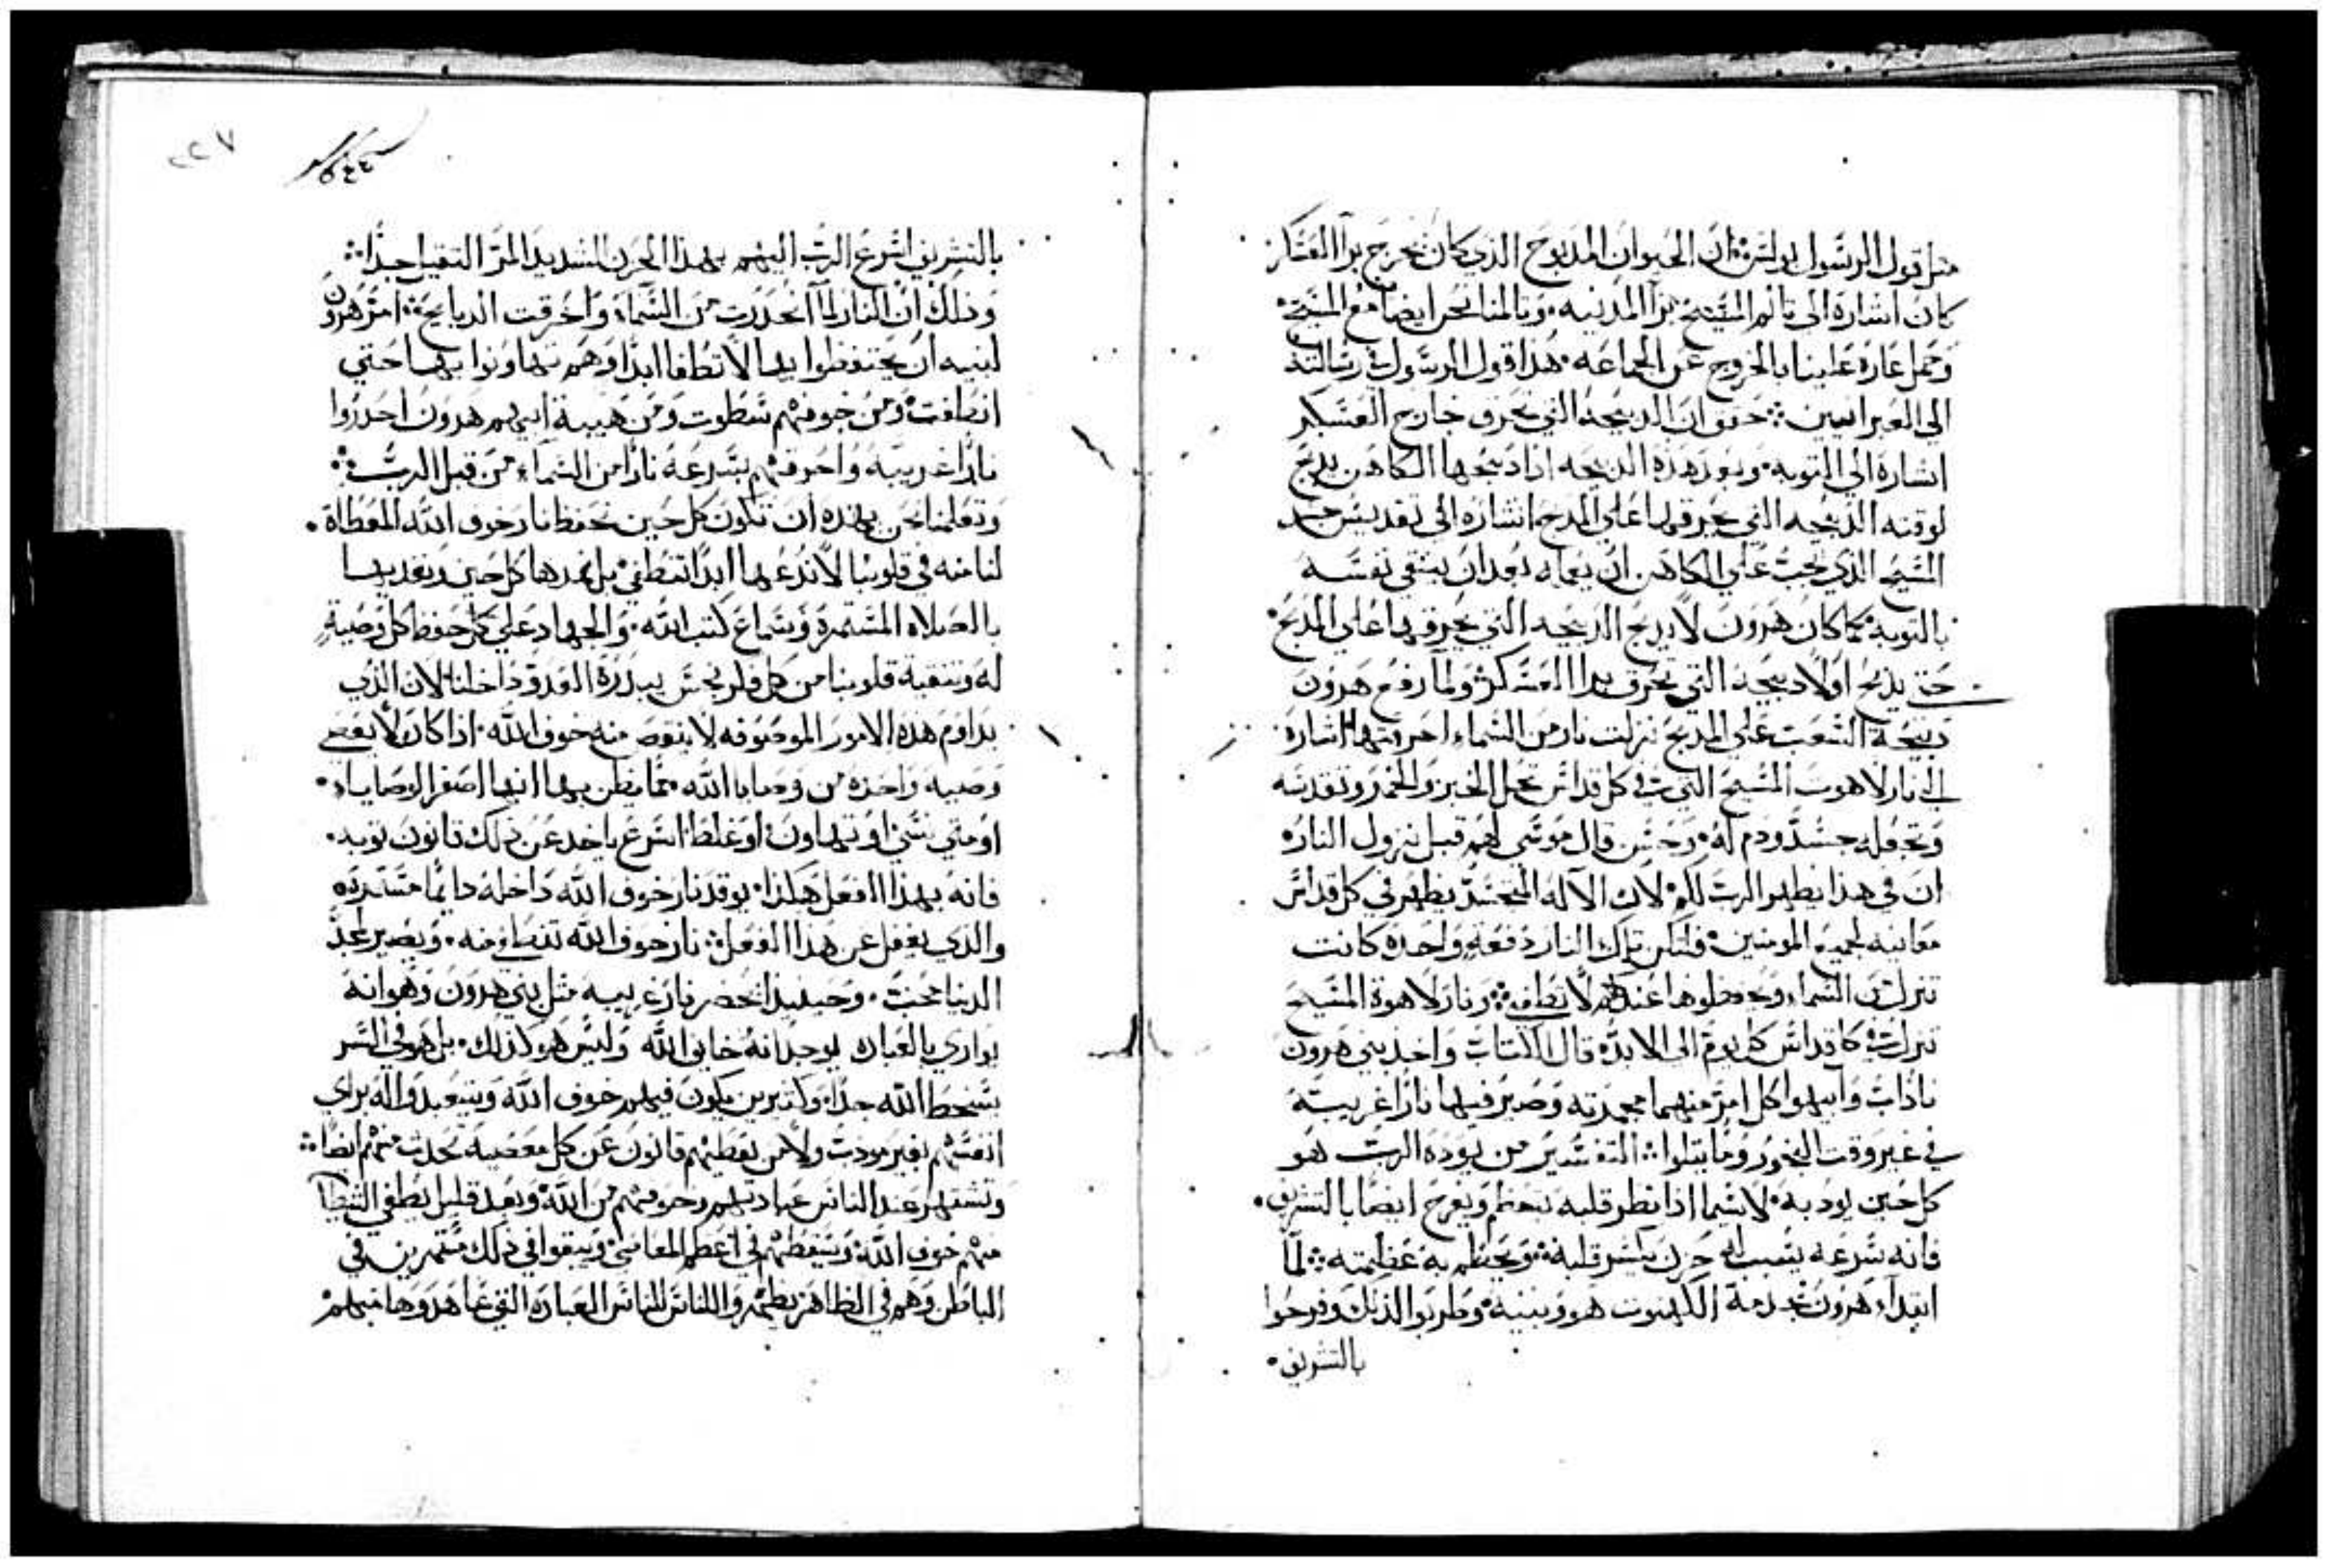 مثل قول الرسول بولس ان الحيوان المدبوح الذي كان يخرج برا العسكر
كان اشارة الى تالم المسيح برا المدينه وتالمنا نحن ايضا مع المسيح
وحمل عارة علينا بالخروج عن الجماعه هذا قول الرسول في رسالته
الي العبرانيين حرق ان الدبيحه التي تحرق خارج العسكر
اشارة الي التوبه وبعد هذه الدبيحه اذا دبحها الكاهن يدبح
لوقته الدبيحه التي يحرقها علي المدبح اشارة الى تقديس جسد
المسيح الذي يجب علي الكاهن ان يعمله بعد ان ينقي نفسه
بالتوبه كما كان هرون لا يدبح الدبيحه التي يحرقها علي المدبح
حتى يدبح اولا دبيحه التي تحرق برا العسكر ولما رفع هرون
دبيحة الشعب علي المدبح نزلت نار من السماء احرقتها اشارة
الي نار لاهوت المسيح التي في كل قداس تحل الخبز والخمر وتقدسه
وتجعله جسد ودم له وحسن قال موسي لهم قبل نزول النار
ان في هذا يظهر الرب لكم لان الاله المتجسد يظهر في كل قداس
معاينه لجميع المومنين فلتكن تلك النار دفعه واحده كانت
تنزل من السماء ويحفظوها عندهم لا تطفي ونار لاهوة المسيح
تنزل في كل قداس كل يوم الى الابد قال الكتاب واخد بني هرون
ناداب وابيهوا كل امر منهما مجمرته وصير فيها نارا غريبة
في غير وقت البخور وما يتلوا التفسير من يوده الرب هو
كل حين يودبه لا سيما اذا نظر قلبه تعظم ويفرح ايضا بالتشريف
فانه سرعه يسبب له حزن يكسر قلبه ويحطم به عظمته لما
ابتداء هرون بخدمة الكهنوت هو وبنيه وطربوا لذلك وفرحوا
بالتشريف
٢٢٧
بالتشريف اسرع الرب اليهم بهذا الحزن الشديد المر التقيل جدا
وذلك ان النار لما انحدرت من السماء واحرقت الدبايح امر هرون
لبنيه ان يحتفظوا بها لا تطفا ابدا وهم تهاونوا بها حتي
انطافت ومن خوفهم سطوت ومن هيبة ابيهم هرون احدروا
نارا غريبه واحرقتهم بسرعة نارا من السماء من قبل الرب
وتعلمنا نحن بهذه ان نكون كل حين نحفظ نار خوف الله المعطاة
لنا منه في قلوبنا لا ندعها ابدا تنطفي بل نمدها كل حين ونقديها
بالصلاه المستمرة وسماع كتب الله والجهاد علي كل حفظ كل وصية
له وتنقية قلوبنا من كل فكر نجس يبدره العدو داخلنا لان الذي
يداوم هذه الامور الموصوفه لا ينقص منه خوف الله اذا كان لا يعصي
وصيه واحده من وصايا الله مما يظن بها انها اصغر الوصايا
او متي نسي او تهاون او غلط اسرع ياخد عن ذلك قانون توبه
فانه بهذا الفعل هكذا يوقد نار خوف الله داخله دايما متسرده
والذي يغفل عن هذا الفعل نار خوف الله تنطفي منه ويصير لمجد
الدنيا محب وحينيذ تحضر نار غريبه مثل بني هرون وهو انه
يواري بالعباده ليوجد انه خايف الله وليس هو كذلك بل هو في السر
يسخط الله جدا وكتيرين يكون فيهم خوف الله ويتعبدوا له براي
انفسهم بغير مودب ولا من يعطيهم قانون عن كل معصية تحدث منهم ايضا
وتشتهر عند الناس عبادتهم وخوفهم من الله وبعد قليل يطفي الشيطان
منهم خوف الله ويسقطهم في اعظم المعاصي ويبقوا في ذلك مستمرين في
الباطن وهم في الظاهر يظهروا للناس لباس العبادة التي عاهدوها منهم